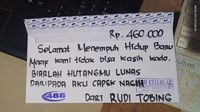 Rp. 460.000
Selamat Menempuh Hidup Baru
Maaf kami tidak bisa kasih kado.
BIARLAH HUTANGMU LUNAS
DARIPADA AKU CAPEK NAGIH
DARI RUDI TOBING
486